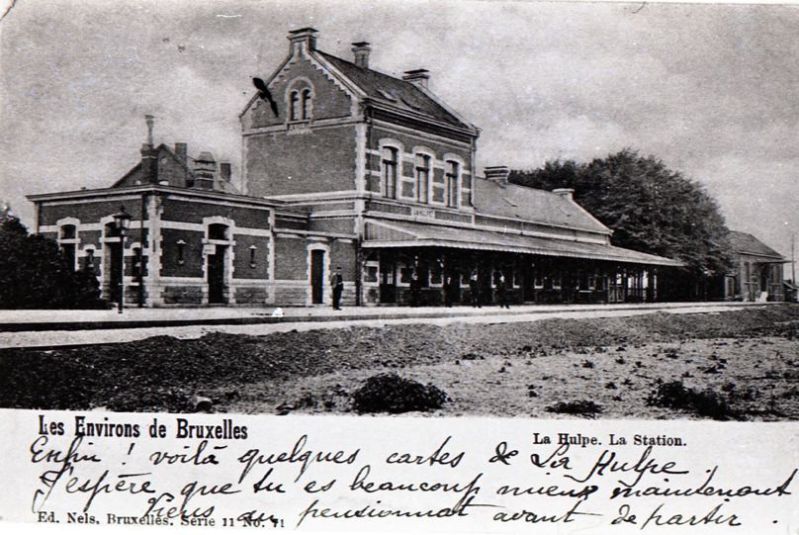 LA HULPE
Les Environs de Bruxelles
La Hulpe. La Station.
Enfin ! voilà quelques cartes de La Hulpe.
J'espère que tu es beaucoup mieux maintenant
Viens au pensionnat avant de partir.
Ed. Nels, Bruxelles. Série 11 No. 71